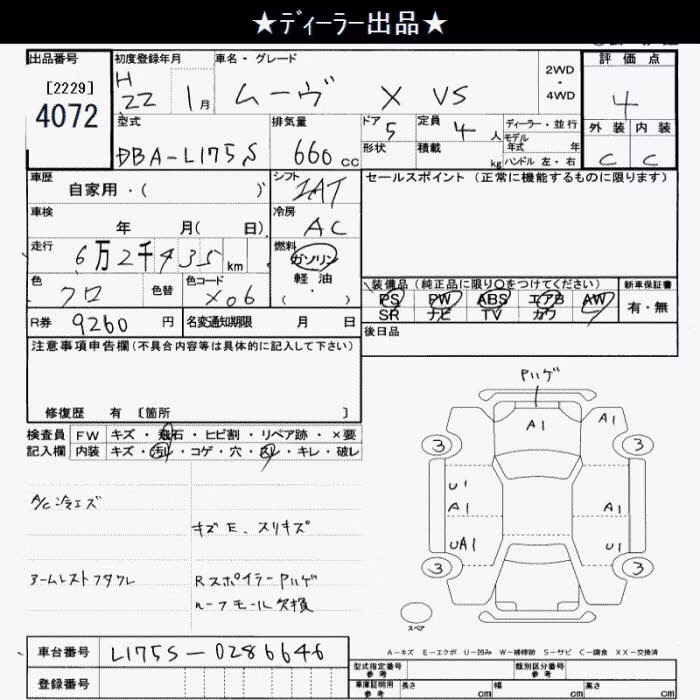 ★ディーラー出品★
出品番号 初度登録年月 車名・グレード 評価点
[2229]
4072
H 22 1月 ムーヴ X VS 2WD・4WD 4
型式 排気量 ドア 定員 ディーラー・並行 外装 内装
DBA-L175S 660cc 5 4人 モデル年式 年 C C
形状 積載 kg ハンドル 左・右
車歴 シフト セールスポイント (正常に機能するものに限ります)
自家用・( ) IAT
車検 冷房
年 月( 日) AC
走行 燃料
6万2千435km ガソリン
軽油
( ・ )
色 色替 色コード 装備品 (純正品に限り○をつけてください) 新車保証書
クロ X06 PS PW ABS エアB AW 有・無
SR ナビ TV カワ
R券 9260円 名変通知期限 月 日 後日品
注意事項申告欄(不具合内容等は具体的に記入して下さい)
修復歴 有 〔箇所 〕
検査員 FW キズ・飛石・ヒビ割・リペア跡・×要
記入欄 内装 キズ・汚れ・コゲ・穴・・キレ・破レ
A/C冷エズ
キズE、スリキズ
アームレストフタワレ
RスポイラーPハゲ
ルーフモール欠損
Pハゲ
A1 A1
3 3
U1
A1 A1
UA1 U1
3 3
スペア
A-キズ E-エクボ U-凹み W-補修跡 S-サビ C-腐食 XX-交換済
車台番号 L175S-0286646
型式指定番号 参考 類別区分番号 参考
登録番号 車庫証明用 参考 長さ cm 幅 cm 高さ cm